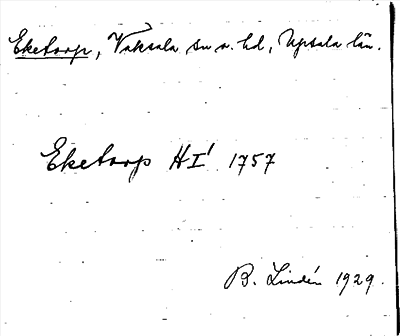 Eketorp, Vaksala sn o. hd, Upsala län.
Eketorp HI' 1757
B. Lindén 1929.